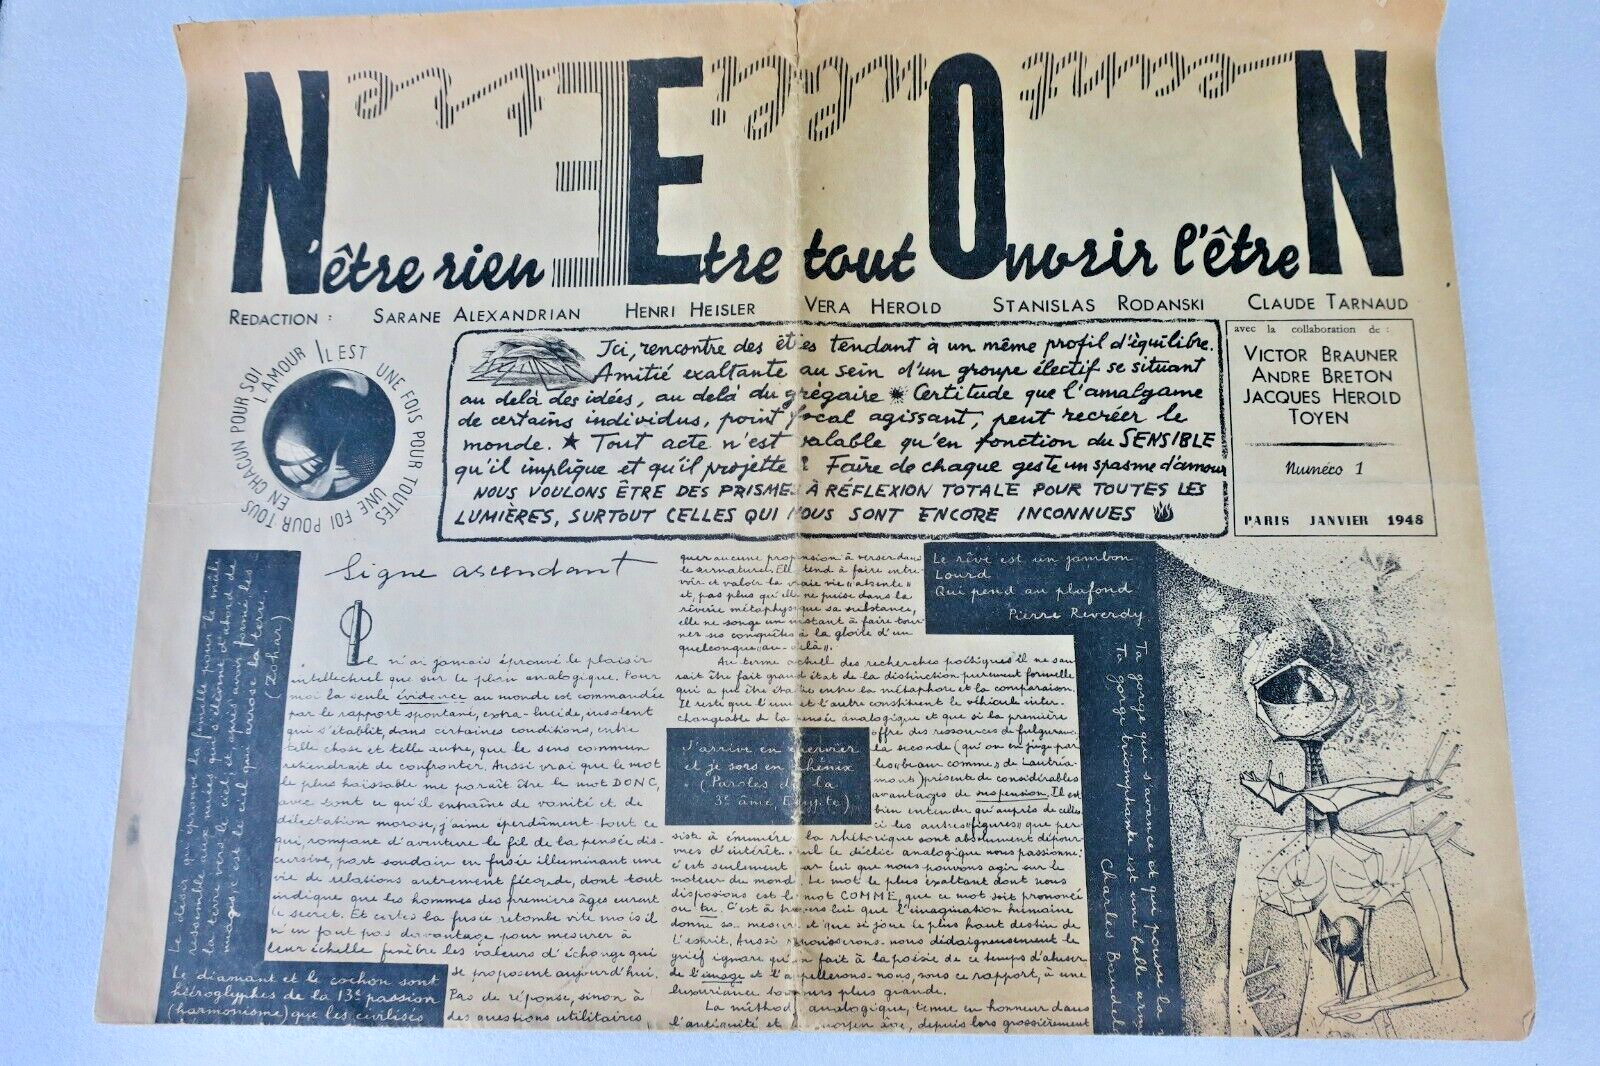 NEON
N'être rien Être tout Ouvrir l'être
REDACTION : SARANE ALEXANDRIAN HENRI HEISLER VERA HEROLD STANISLAS RODANSKI CLAUDE TARNAUD
IL EST UNE FOIS POUR TOUTES
UNE FOI POUR TOUS
EN CHACUN POUR SOI
L'AMOUR
Ici, rencontre des êtres tendant à un même profil d'équilibre.
Amitié exaltante au sein d'un groupe électif se situant
au delà des idées, au delà du grégaire Certitude que l'amalgame
de certains individus, point focal agissant, peut recréer le
monde. ★ Tout acte n'est valable qu'en fonction du SENSIBLE
qu'il implique et qu'il projette Faire de chaque geste un spasme d'amour
NOUS VOULONS ÊTRE DES PRISMES À RÉFLEXION TOTALE POUR TOUTES LES
LUMIÈRES, SURTOUT CELLES QUI NOUS SONT ENCORE INCONNUES
avec la collaboration de :
VICTOR BRAUNER
ANDRE BRETON
JACQUES HEROLD
TOYEN
Numéro 1
PARIS JANVIER 1948
Le désir qu'éprouve la femelle pour le mâle
ressemble aux nuées qui s'élèvent d'abord de
la terre vers le ciel, et, après avoir formé les
nuages, c'est le ciel qui arrose la terre.
(Zohar)
Signe ascendant
Je n'ai jamais éprouvé le plaisir
intellectuel que sur le plan analogique. Pour
moi la seule évidence au monde est commandée
par le rapport spontané, extra-lucide, insolent
qui s'établit, dans certaines conditions, entre
telle chose et telle autre, que le sens commun
retiendrait de confronter. Aussi vrai que le mot
le plus haïssable me paraît être le mot DONC,
avec tout ce qu'il entraîne de vanité et de
délectation morose, j'aime éperdûment tout ce
qui, rompant d'aventure le fil de la pensée dis-
cursive, part soudain en fusée illuminant une
vie de relations autrement féconde, dont tout
indique que les hommes des premiers âges eurent
le secret. Et certes la fusée retombe vite mais il
n'en faut pas davantage pour mesurer à
leur échelle funèbre les valeurs d'échange qui
se proposent aujourd'hui.
Pas de réponse, sinon à
des questions utilitaires
Le diamant et le cochon sont
hiéroglyphes de la 13e passion
(harmonisme) que les civilisés
quer aucune propension à verser dans
le surnaturel. Elle tend à faire entre-
voir et valoir la vraie vie "absente"
et, pas plus qu'elle ne puise dans la
rêverie métaphysique sa substance,
elle ne songe un instant à faire tour-
ner ses conquêtes à la gloire d'un
quelconque "au-delà".
Au terme actuel des recherches poétiques il ne sau-
rait être fait grand état de la distinction purement formelle
qui a pu être établie entre la métaphore et la comparaison.
Il reste que l'une et l'autre constituent le véhicule inter-
changeable de la pensée analogique et que si la première
offre des ressources de fulgurance,
la seconde (qu'on en juge par
les "beaux comme" de Lautréa-
mont) présente de considérables
avantages de suspension. Il est
bien entendu qu'auprès de celles-
ci les autres "figures" que per-
siste à énumérer la rhétorique sont absolument dépour-
vues d'intérêt. Seul le déclic analogique nous passionne:
c'est seulement par lui que nous pouvons agir sur le
moteur du monde. Le mot le plus exaltant dont nous
disposions est le mot COMME, que ce mot soit prononcé
ou tu. C'est à travers lui que l'imagination humaine
donne sa mesure et que se joue le plus haut destin de
l'esprit. Aussi repousserons-nous dédaigneusement le
grief ignare qu'on fait à la poésie de ce temps d'abuser
de l'image et l'appellerons-nous, sous ce rapport, à une
luxuriance toujours plus grande.
La méthode analogique, tenue en honneur dans
l'antiquité et le moyen âge, depuis lors grossièrement
J'arrive en épervier
et je sors en phénix
(Paroles de la
3e âme, Egypte)
Le rêve est un jambon
Lourd
Qui pend au plafond
Pierre Reverdy
Ta gorge qui s'avance et qui pousse la
Ta gorge triomphante est une belle arm
Charles Baudel